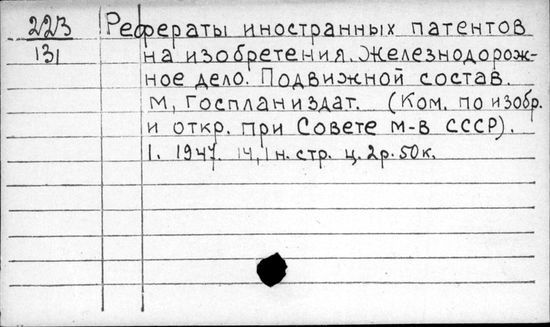 223 Рефераты иностранных патентов
131 на изобретения. Железнодорож-
ное дело. Подвижной состав.
М, Госпланиздат. (Ком. по изобр.
и откр. при Совете М-в СССР).
1. 1947. 14,1 н. стр. ц. 2р. 50к.